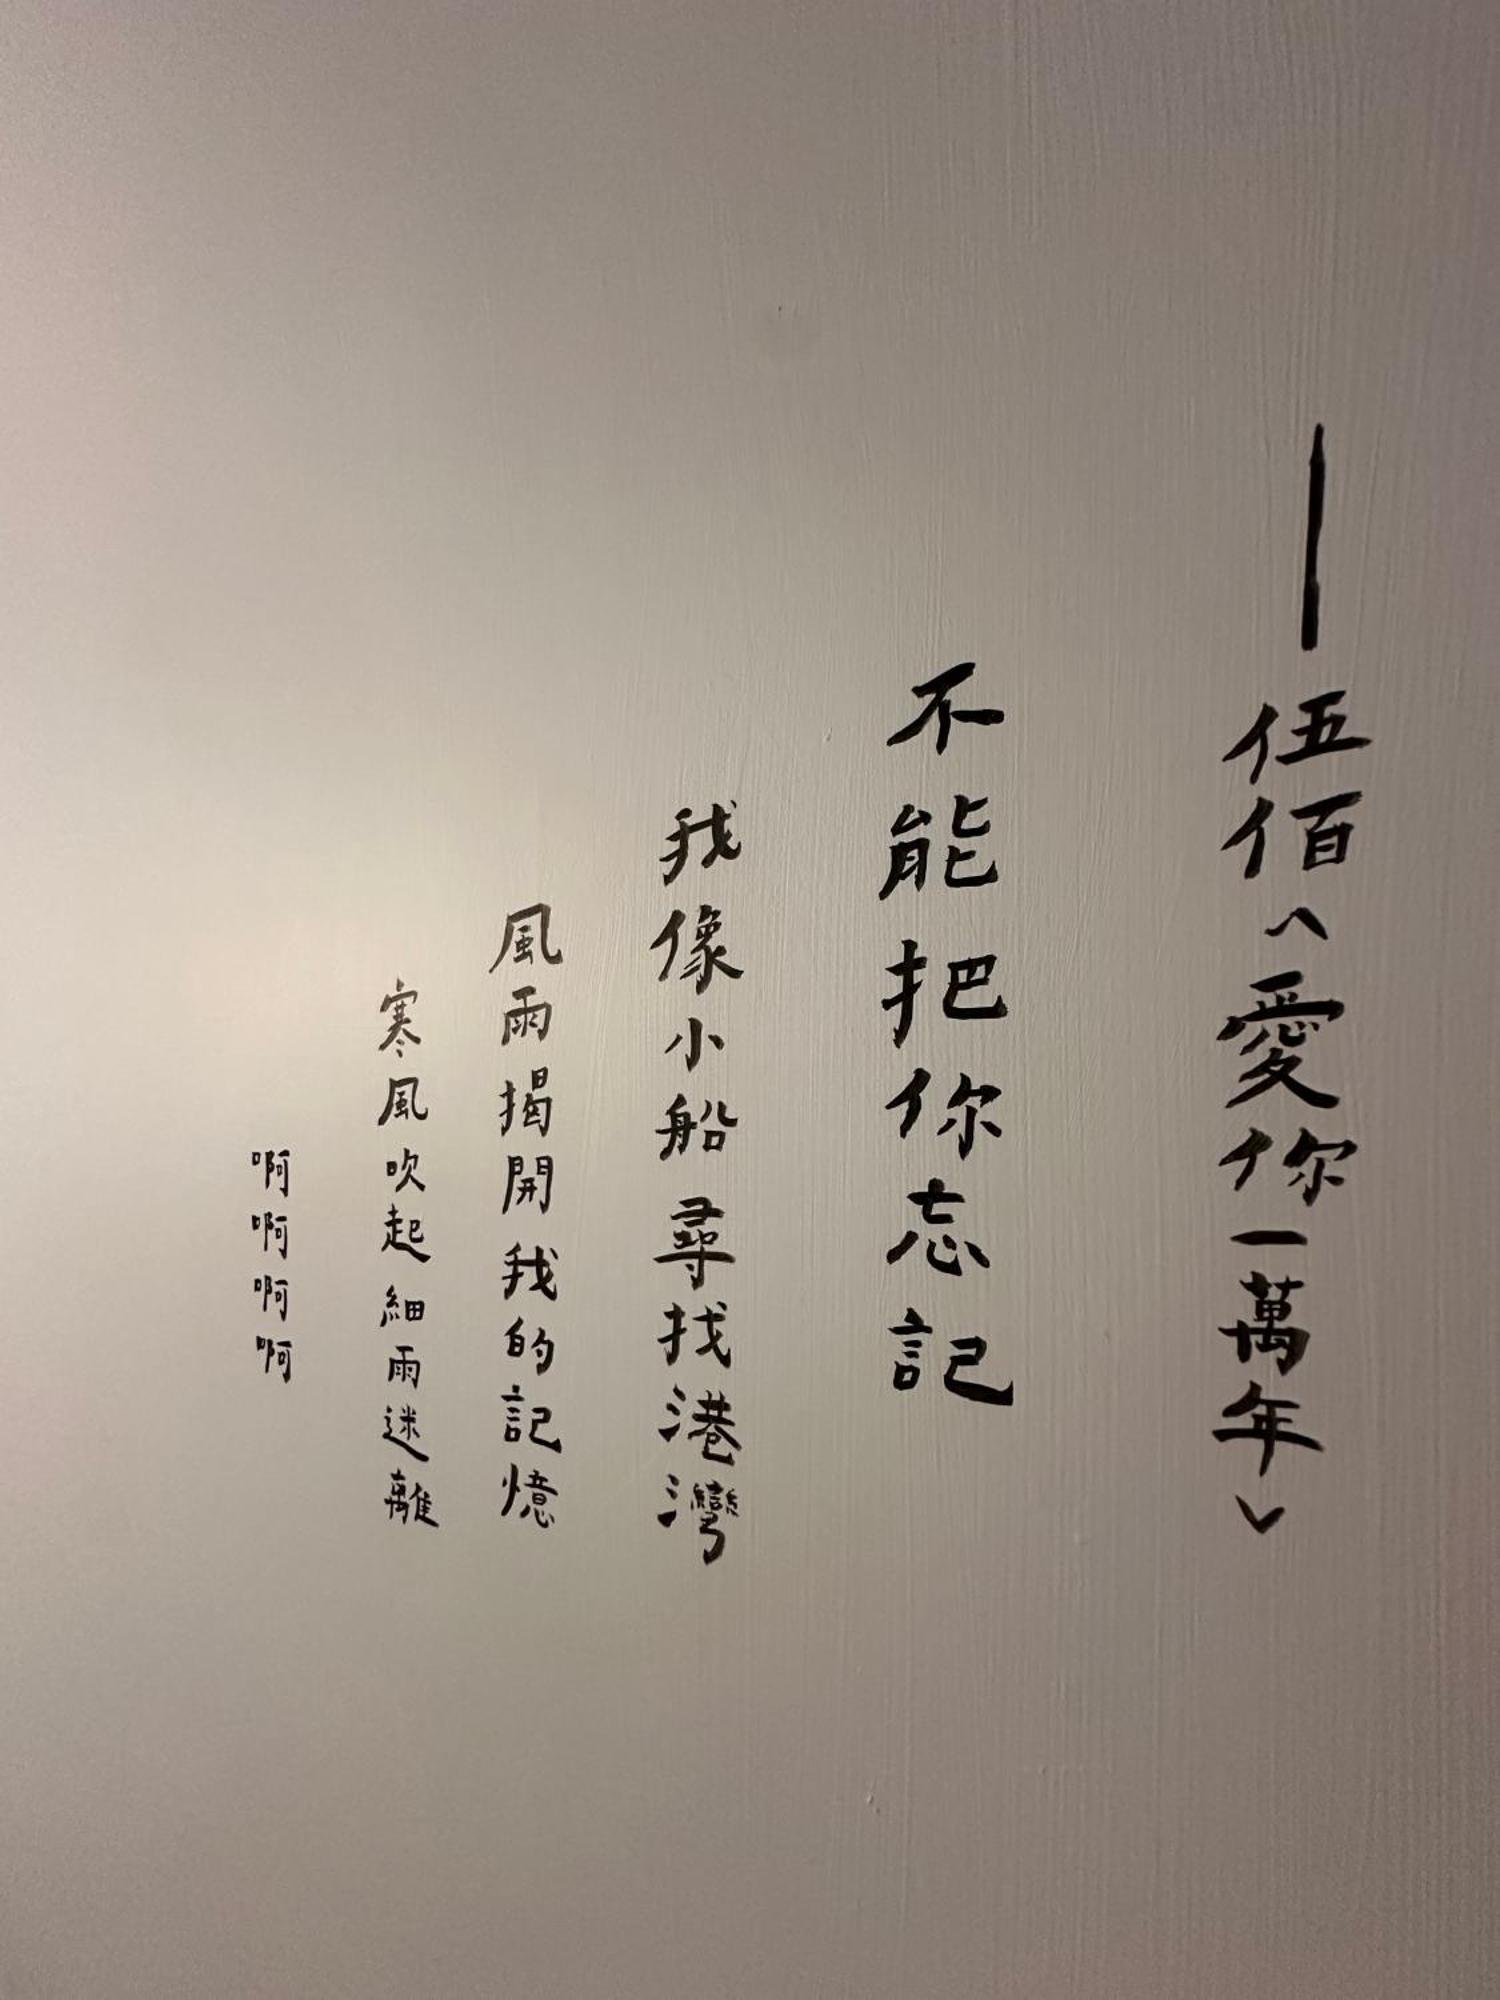 啊啊啊啊
寒風吹起細雨迷離
風雨揭開我的記憶
我像小船尋找港灣
不能把你忘記
—伍佰〈愛你一萬年〉